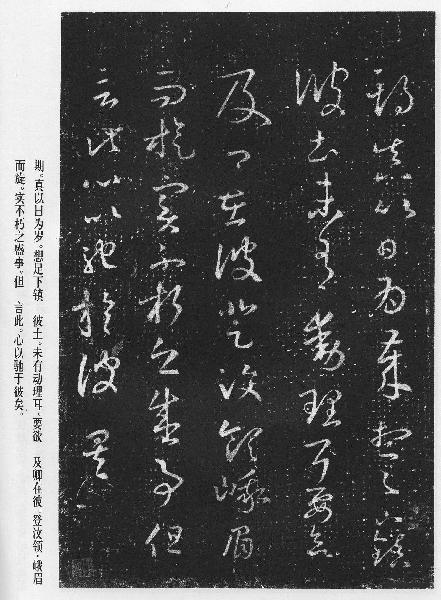 期真以日為歲想足下鎮
彼土未有動理耳要欲
及卿在彼登汶領峨眉
而旋實不朽之盛事但
言此心以馳於彼矣
期。真以日为岁。想足下镇 彼土。未有动理耳。要欲 及卿在彼 登汶领·峨眉
而旋。实不朽之盛事。但 言此。心以驰于彼矣。